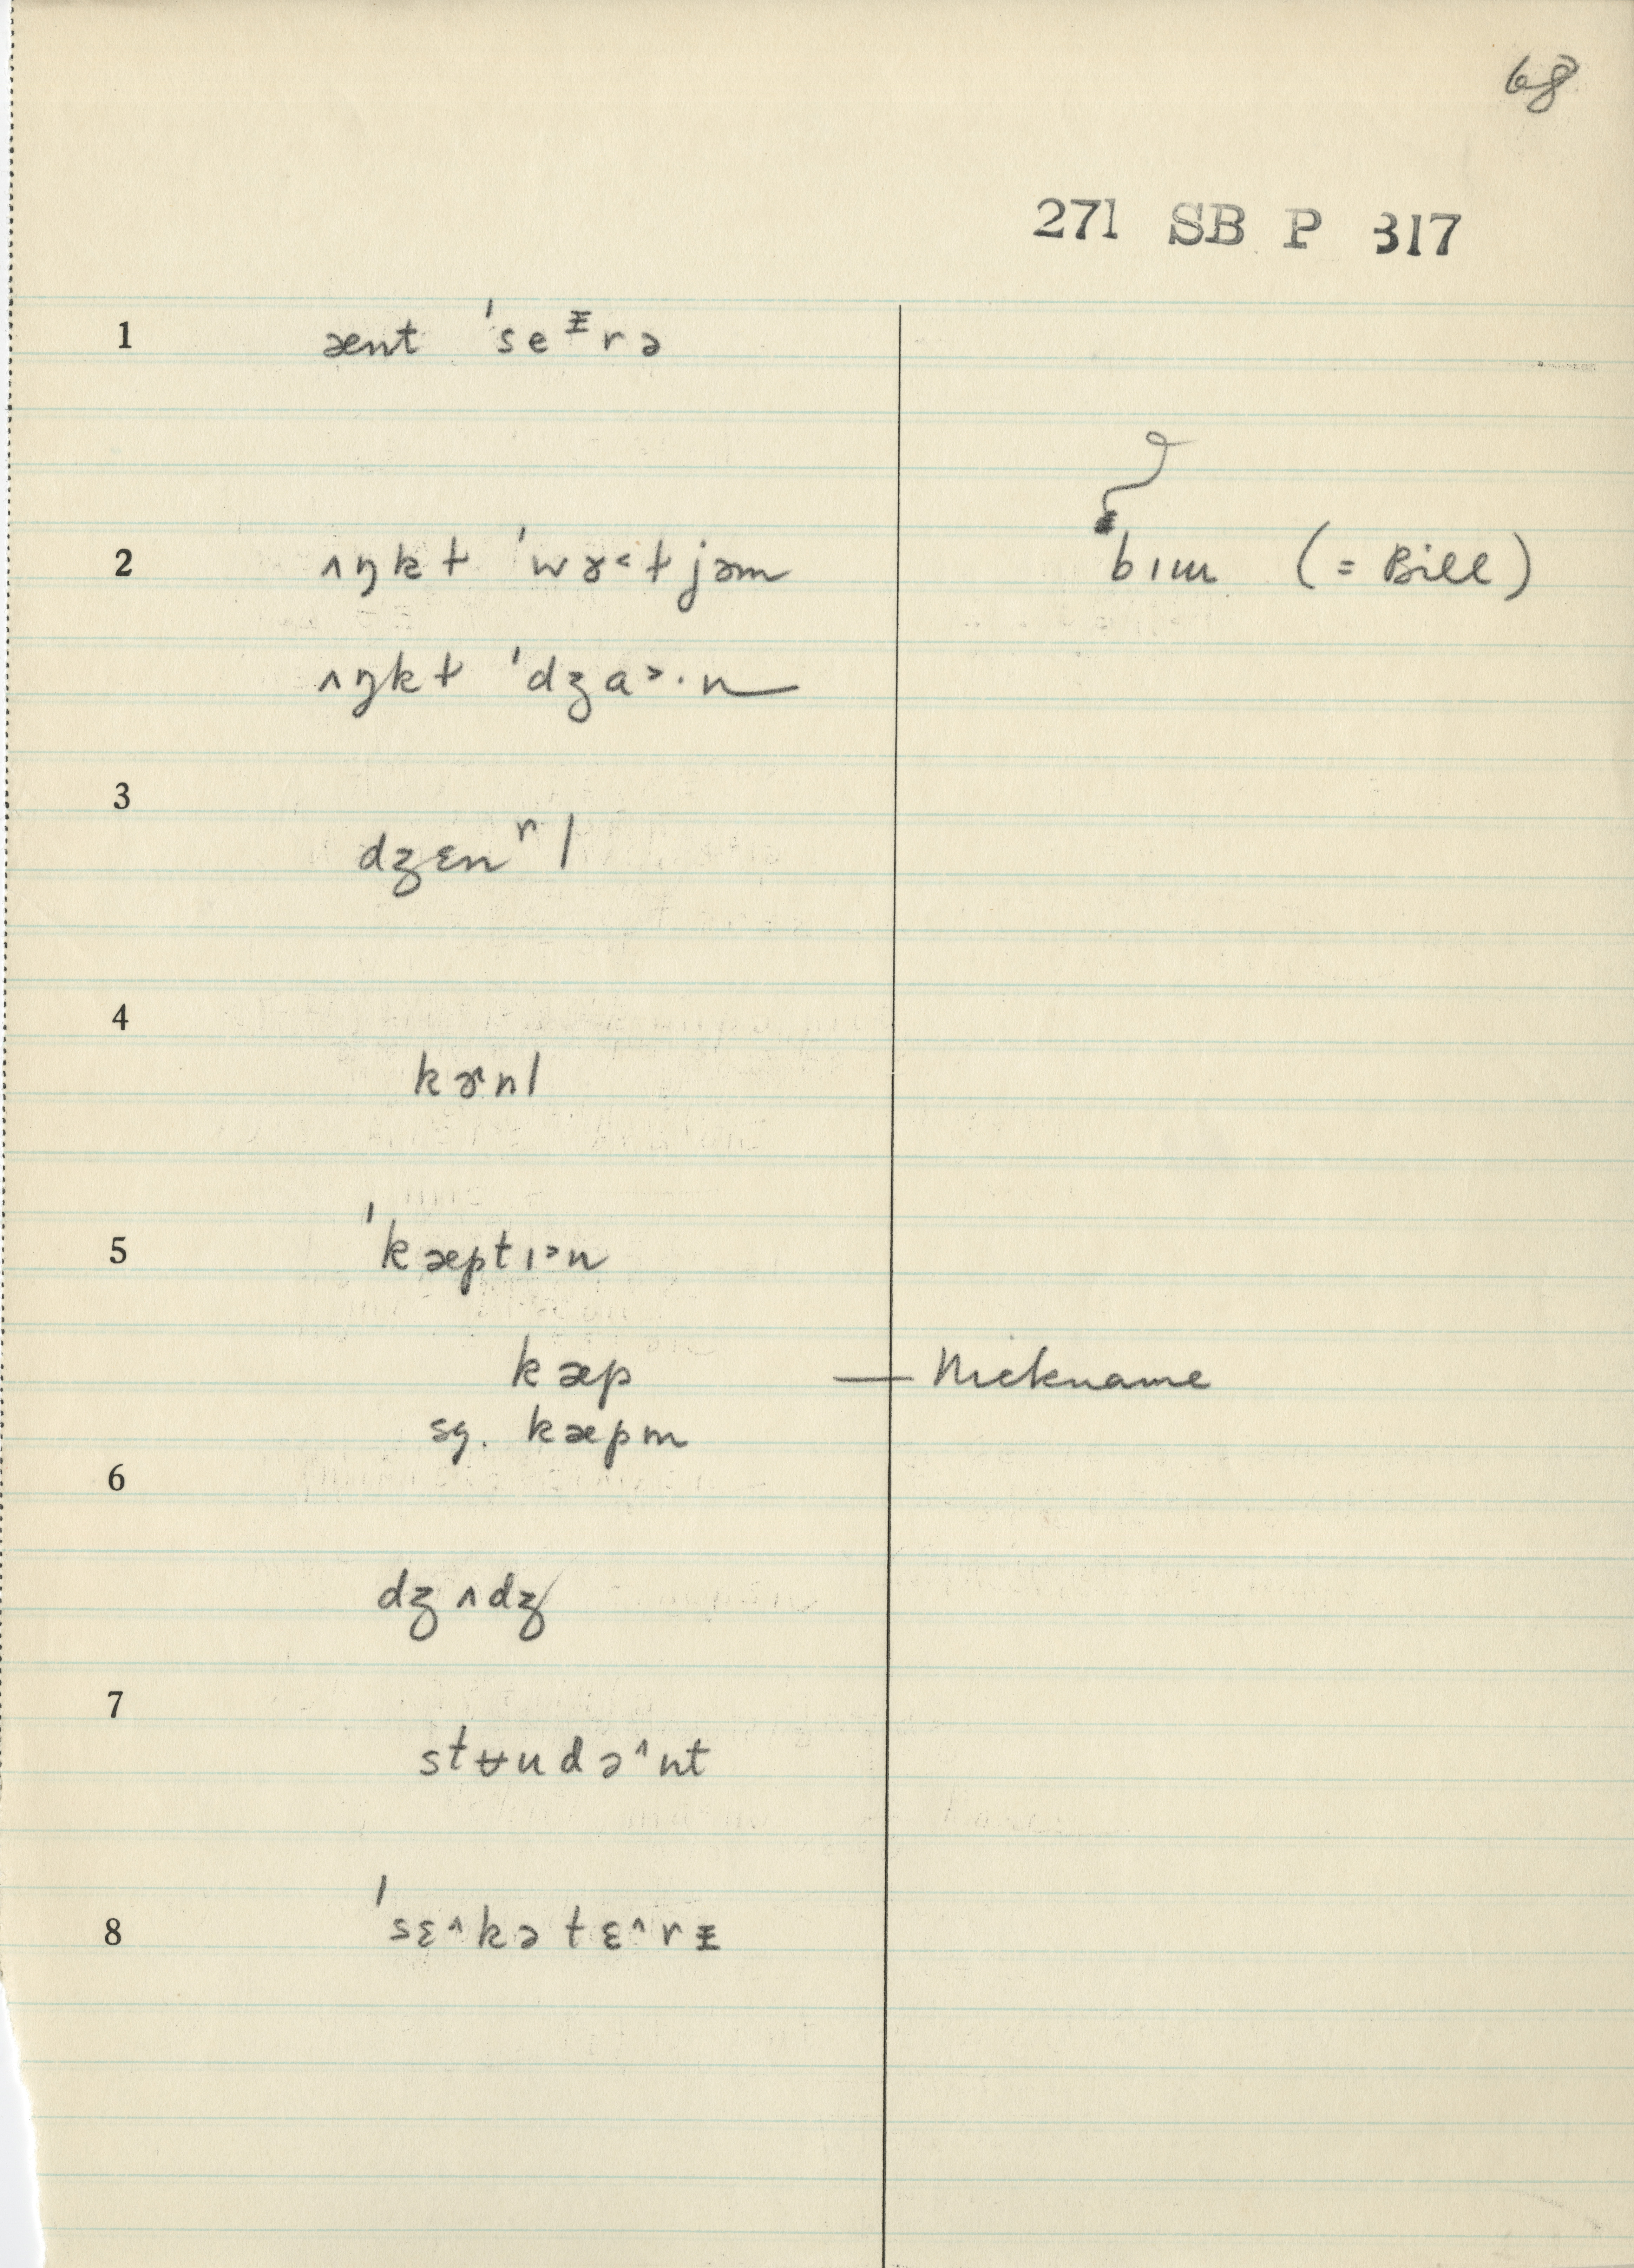 68
271 SB P 317
1 ænt ˈseᵻrə
2 ʌŋkɫ ˈwɤ˂ɫjəm bɪɯ (= Bill)
ʌŋkɫ ˈdʒɑ˃·n
3
dʒɛnʳl
4
kɝnl
5 ˈkæptɪ˃n
kæp — Nickname
sg. kæpm
6
dʒʌdʒ
7
stʉudə^nt
8 ˈsɛ^kətɛ^rᵻ